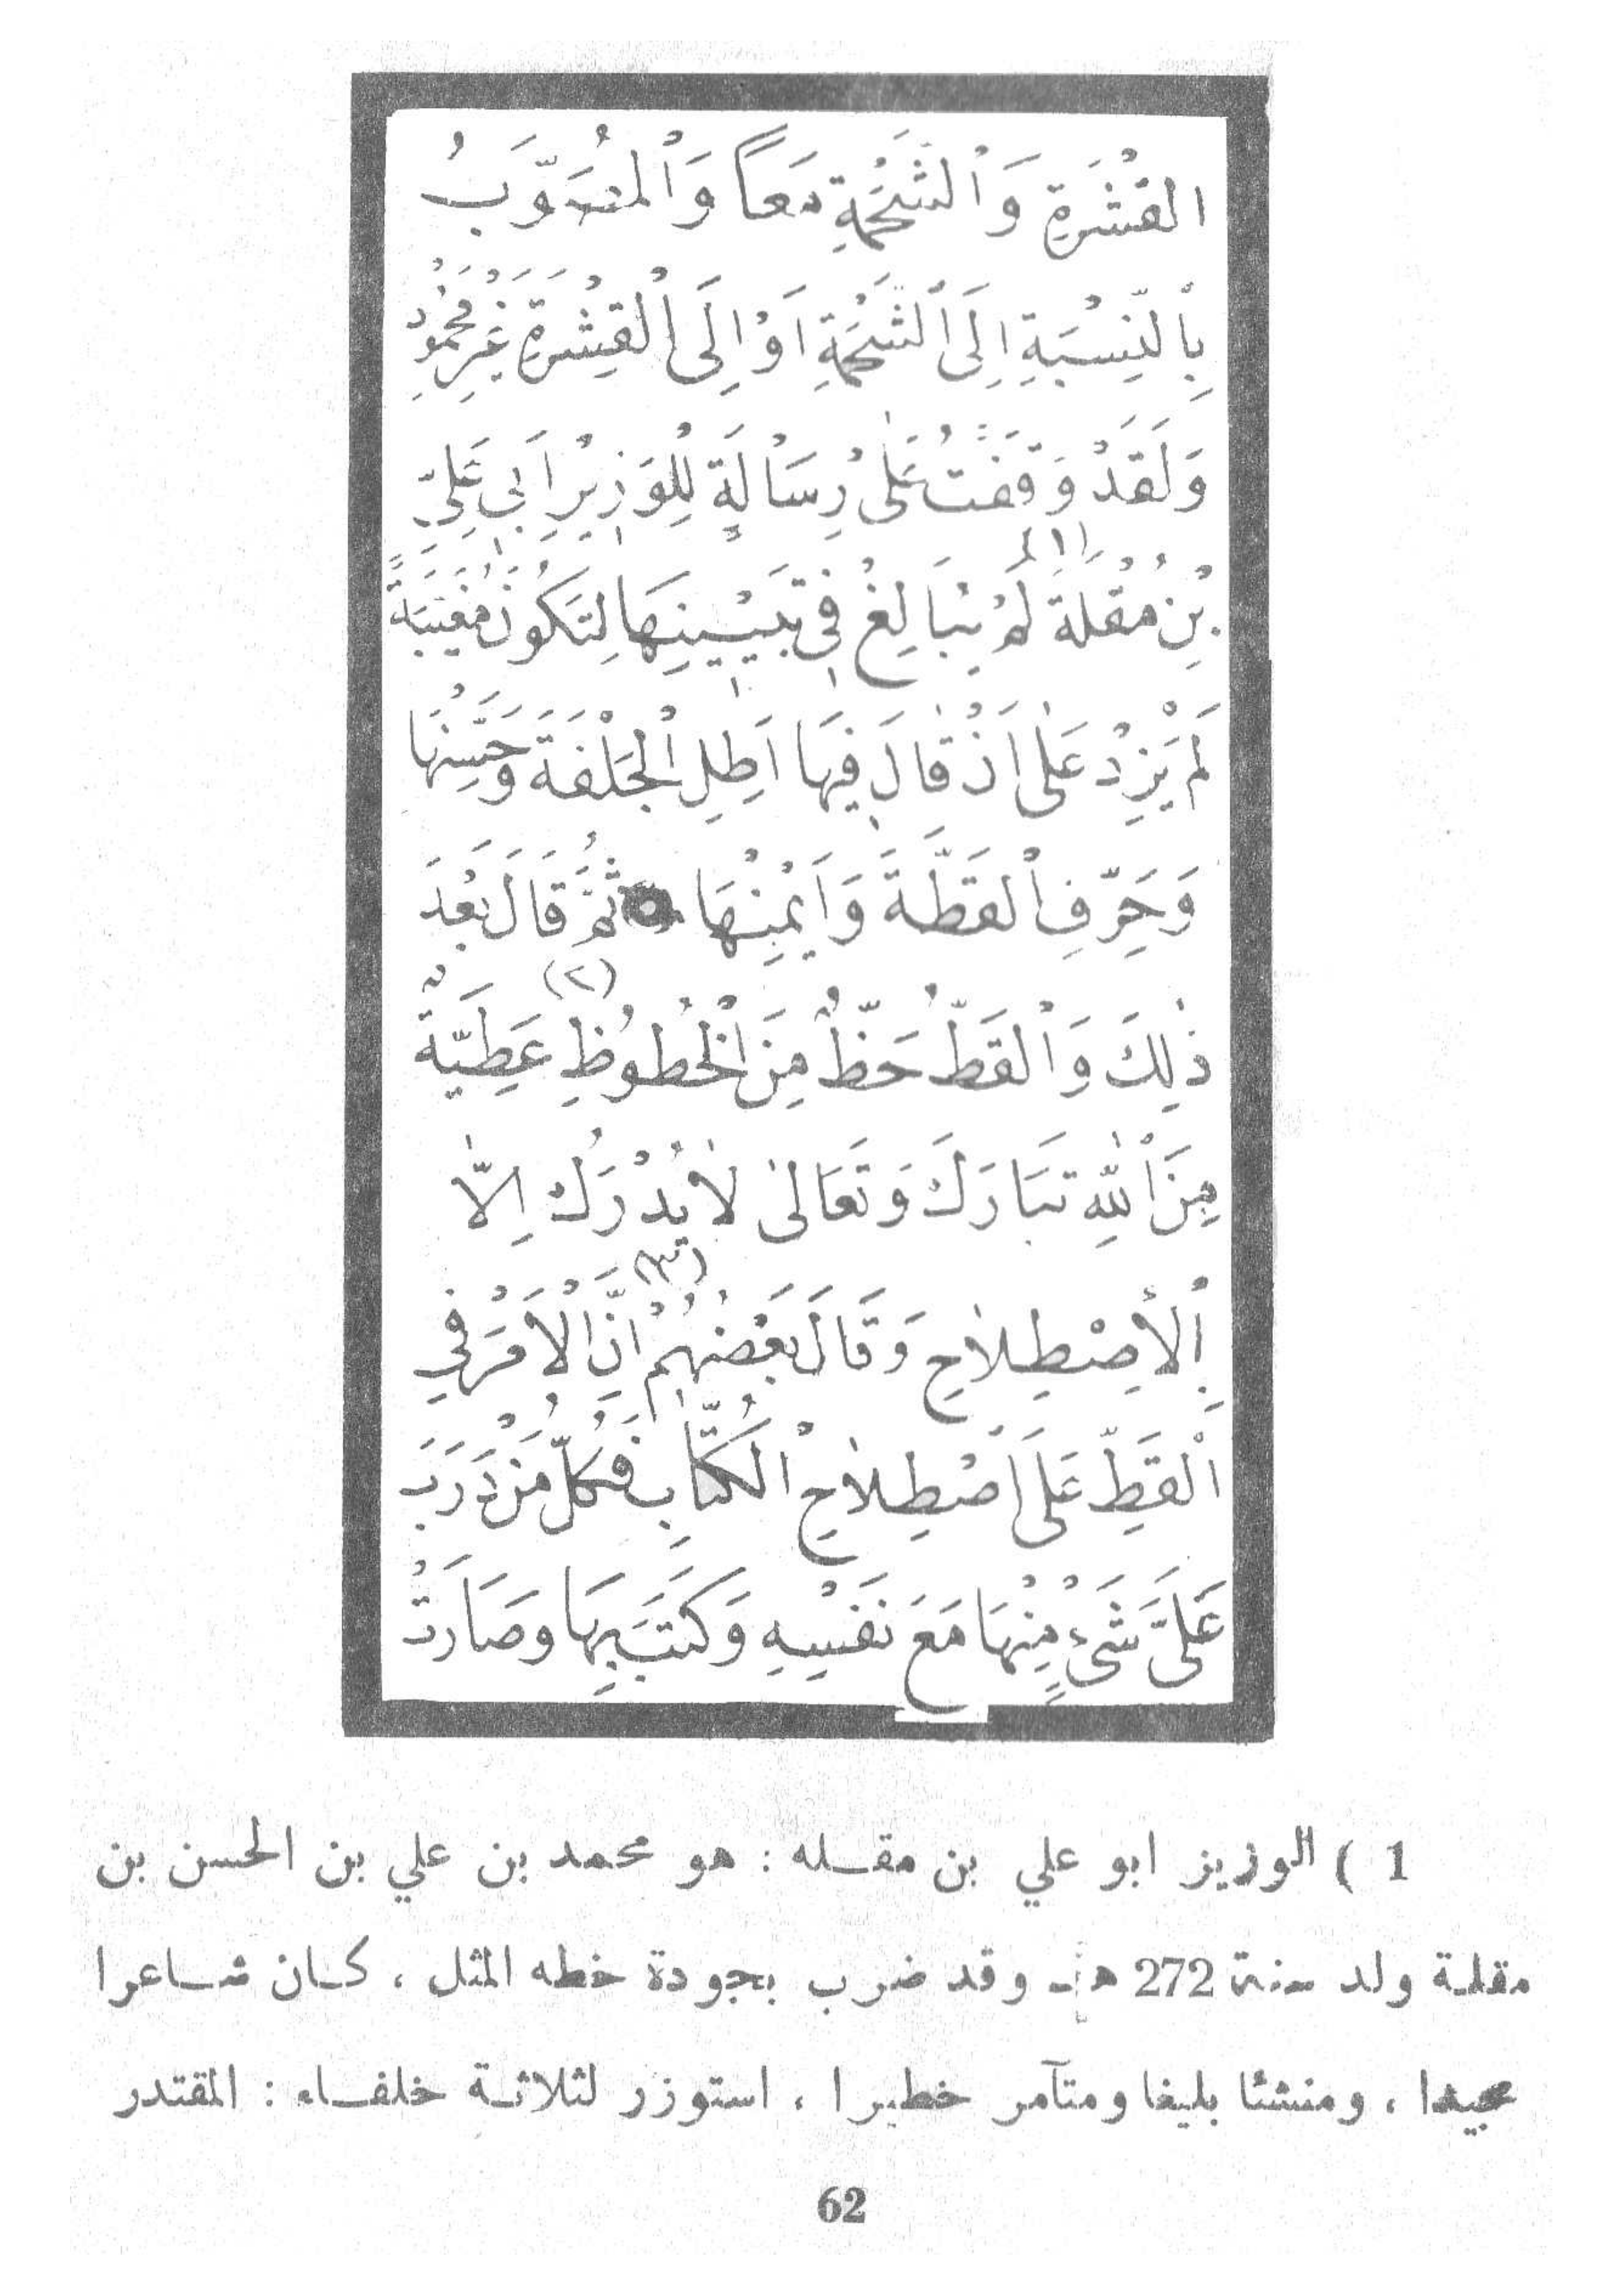 القِشْرَةِ وَالشَّحْمَةِ مَعًا وَالْمُصَوَّبُ
بِالنِّسْبَةِ اِلَى الشَّحْمَةِ اَوْ اِلَى الْقِشْرَةِ غَيْرُ مَحْمُودٍ
وَلَقَدْ وَقَفْتُ عَلٰى رِسَالَةٍ لِلْوَزِيْرِ اَبِي عَلِيّ
بْنِ مُقْلَةَ (١) لَمْ يُبَالِغْ فِي تَبْيِيْنِهَا لِتَكُونَ مُغَيَّبَةً
لَمْ يَزِدْ عَلٰى اَنْ قَالَ فِيْهَا اَطِلِ الْجَلْفَةَ وَحَسِّنْهَا
وَحَرِّفِ الْقَطَّةَ وَاَيْمِنْهَا ثُمَّ قَالَ بَعْدَ
ذٰلِكَ وَالْقَطُّ حَظٌّ مِنَ الْحُظُوْظِ (٢) عَطِيَّةٌ
مِنَ اللّٰهِ تَبَارَكَ وَتَعَالٰى لَا يُدْرَكُ اِلَّا
بِالْاِصْطِلَاحِ وَقَالَ بَعْضُهُمْ (٣) اِنَّ الْاَمْرَ فِي
الْقَطِّ عَلَى اَصْطِلَاحِ الْكُتَّابِ فَكُلُّ مَنْ دَرَبَ
عَلَى شَىْءٍ مِنْهَا مَعَ نَفْسِهِ وَكَتَبَ بِهَا وَصَارَتْ
1 ) الوزيز ابو علي بن مقله : هو محمد بن علي بن الحسن بن
مقلة ولد سنة 272 هـ وقد ضرب بجودة خطه المثل ، كان شاعرا
مجيدا ، ومنشئا بليغا ومتآمر خطيرا ، استوزر لثلاثة خلفاء : المقتدر
62